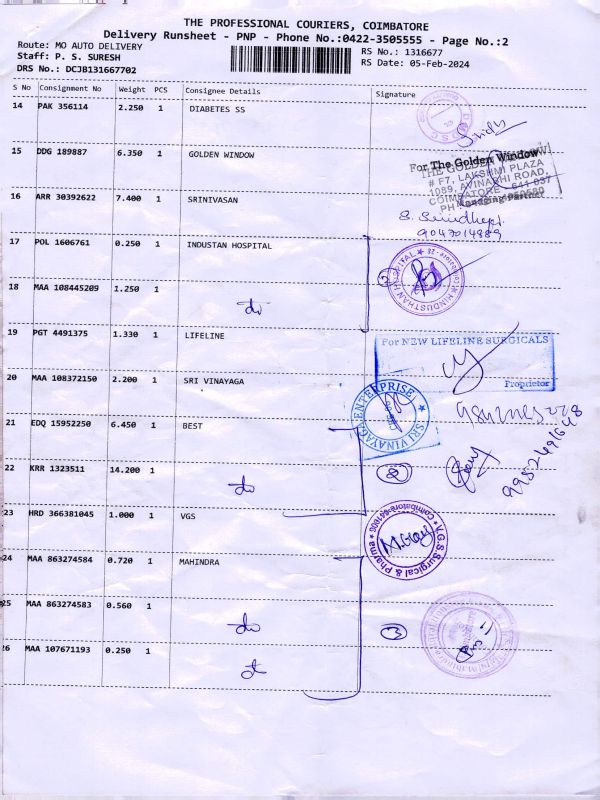 THE PROFESSIONAL COURIERS, COIMBATORE
Delivery Runsheet - PNP - Phone No.:0422-3505555 - Page No.:2
Route: MO AUTO DELIVERY
Staff: P. S. SURESH
DRS No.: DCJB131667702
RS No.: 1316677
RS Date: 05-Feb-2024
S No Consignment No Weight PCS Consignee Details Signature
14 PAK 356114 2.250 1 DIABETES SS
15 DDG 189887 6.350 1 GOLDEN WINDOW
For The Golden Window
THE GOLDEN WINDOW
# F7, LAKSHMI PLAZA
1089, AVINASHI ROAD,
COIMBATORE - 641 037
Managing Partner
16 ARR 30392622 7.400 1 SRINIVASAN
9047014889
17 POL 1606761 0.250 1 INDUSTAN HOSPITAL
HINDUSTHAN HOSPITAL
2
18 MAA 108445209 1.250 1
do
19 PGT 4491375 1.330 1 LIFELINE
For NEW LIFELINE SURGICALS
Proprietor
20 MAA 108372150 2.200 1 SRI VINAYAGA
SRI VINAYAGA ENTERPRISE
21 EDQ 15952250 6.450 1 BEST
22 KRR 1323511 14.200 1
do
2
9952691648
23 HRD 366381045 1.000 1 VGS
V.G.S Surgical & Pharma
Coimbatore-641006
24 MAA 863274584 0.720 1 MAHINDRA
25 MAA 863274583 0.560 1
do
3
26 MAA 107671193 0.250 1
do